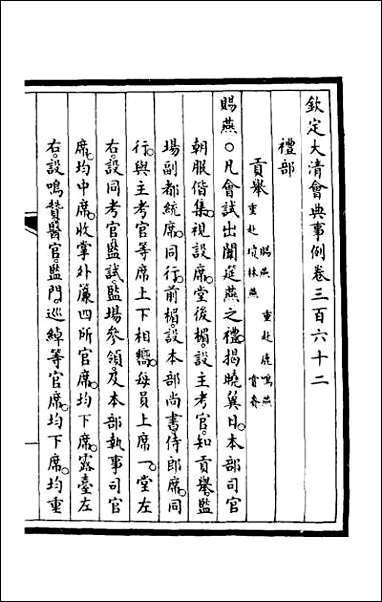 欽定大清會典事例卷三百六十二
禮部
貢舉 賜燕 重赴鹿鳴燕 重赴瓊林燕 賚弆
賜燕○凡會試出闈筵燕之禮揭曉翼日本部司官
朝服偕集視設席堂後楣設主考官知貢舉監
場副都統席同行前楣設本部尚書侍郎席同
行與主考官等席上下相嚮每員上席一堂左
右設同考官監試監場參領及本部執事司官
席均中席收掌外簾四所官席均下席露臺左
右設鳴贊醫官監門巡綽等官席均下席均重